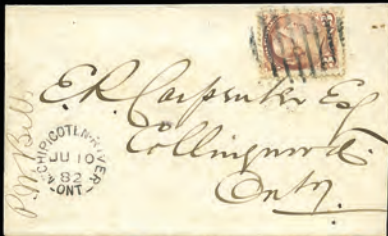 E.R. Carpenter Esq
Collingwood.
Onty.
MICHIPICOTEN-RIVER
JU 10
82
ONT
P.W. Bell